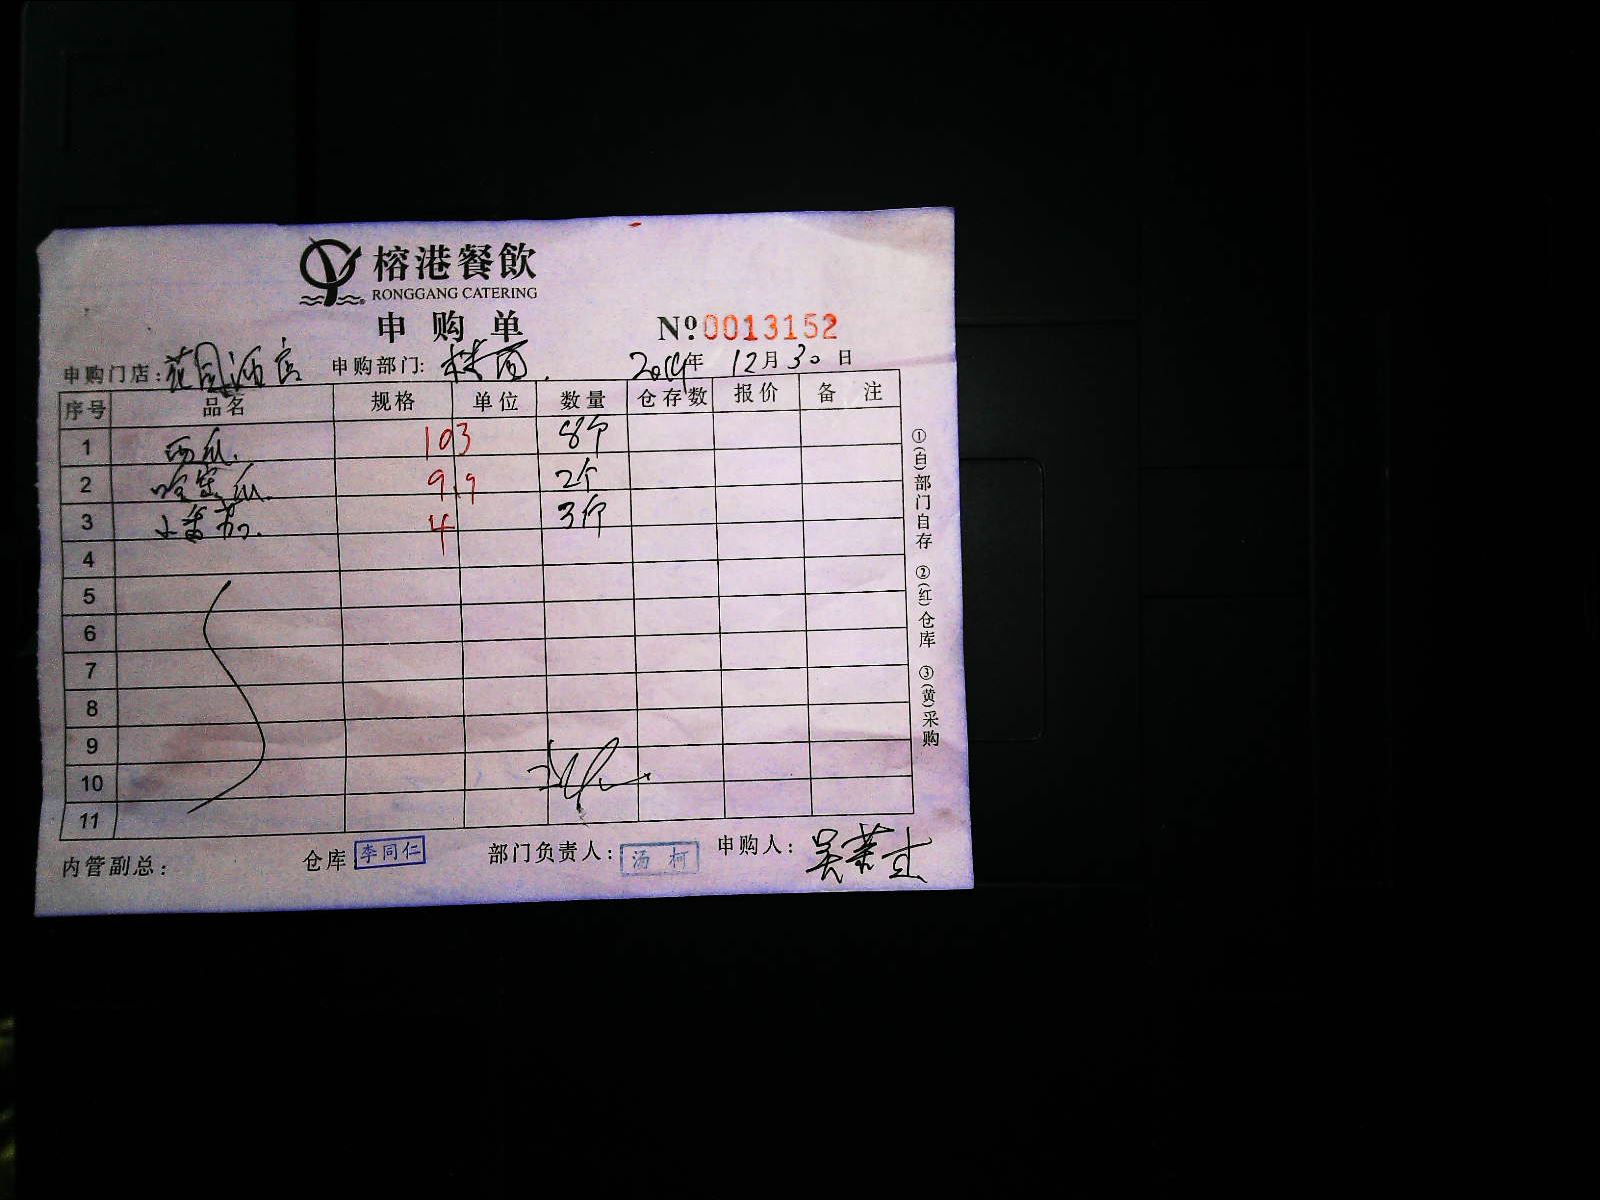 榕港餐飲
RONGGANG CATERING
申购单 Nº0013152
申购门店:花园酒店 申购部门:楼面. 2014年12月30日
序号 品名 规格 单位 数量 仓存数 报价 备注
1 西瓜. 103 8个
2 哈密瓜. 9.9 2个
3 小番茄. 4 3斤
4
5
6
7
8
9
10
11
内管副总: 仓库 李同仁 部门负责人: 汤柯 申购人:
①(白)部门自存 ②(红)仓库 ③(黄)采购